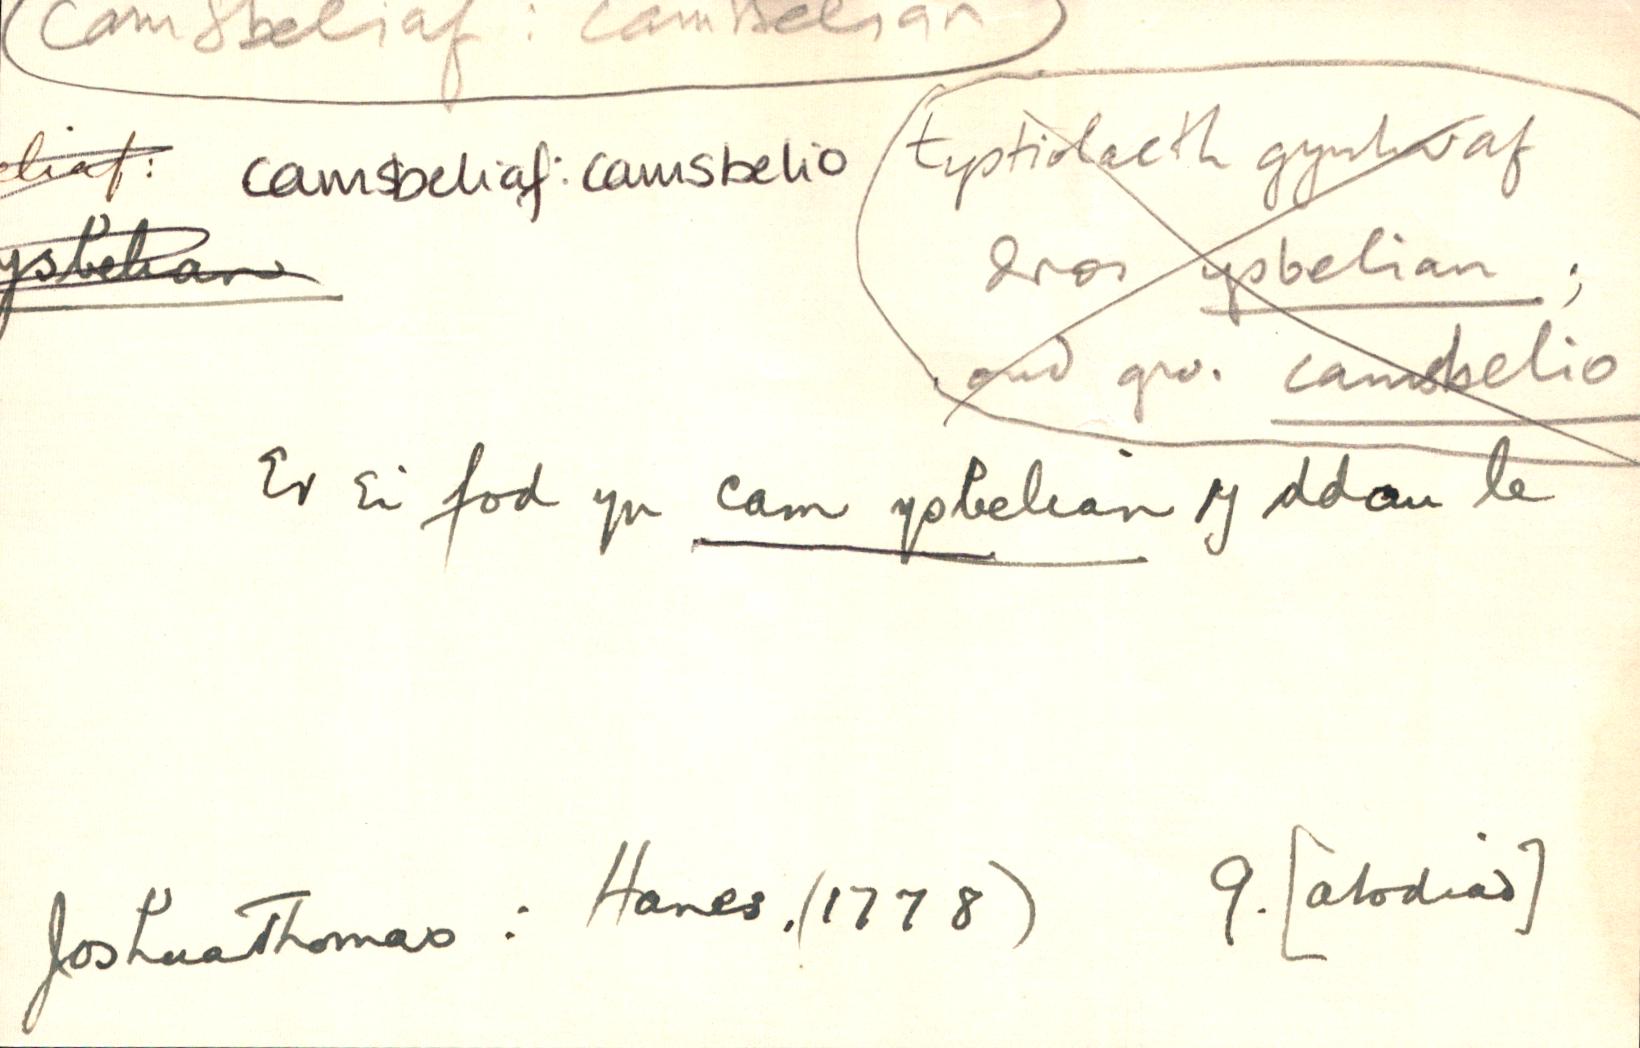 camsbeliaf : camsbelian
eliaf: camsbeliaf: camsbelio
ysbelian
tystiolaeth gynharaf
dros ysbelian ;
ond gw. camsbelio
Er Ei fod yn cam ysbelian y ddau le
Joshua Thomas : Hanes. (1778) 9. [atodiad]